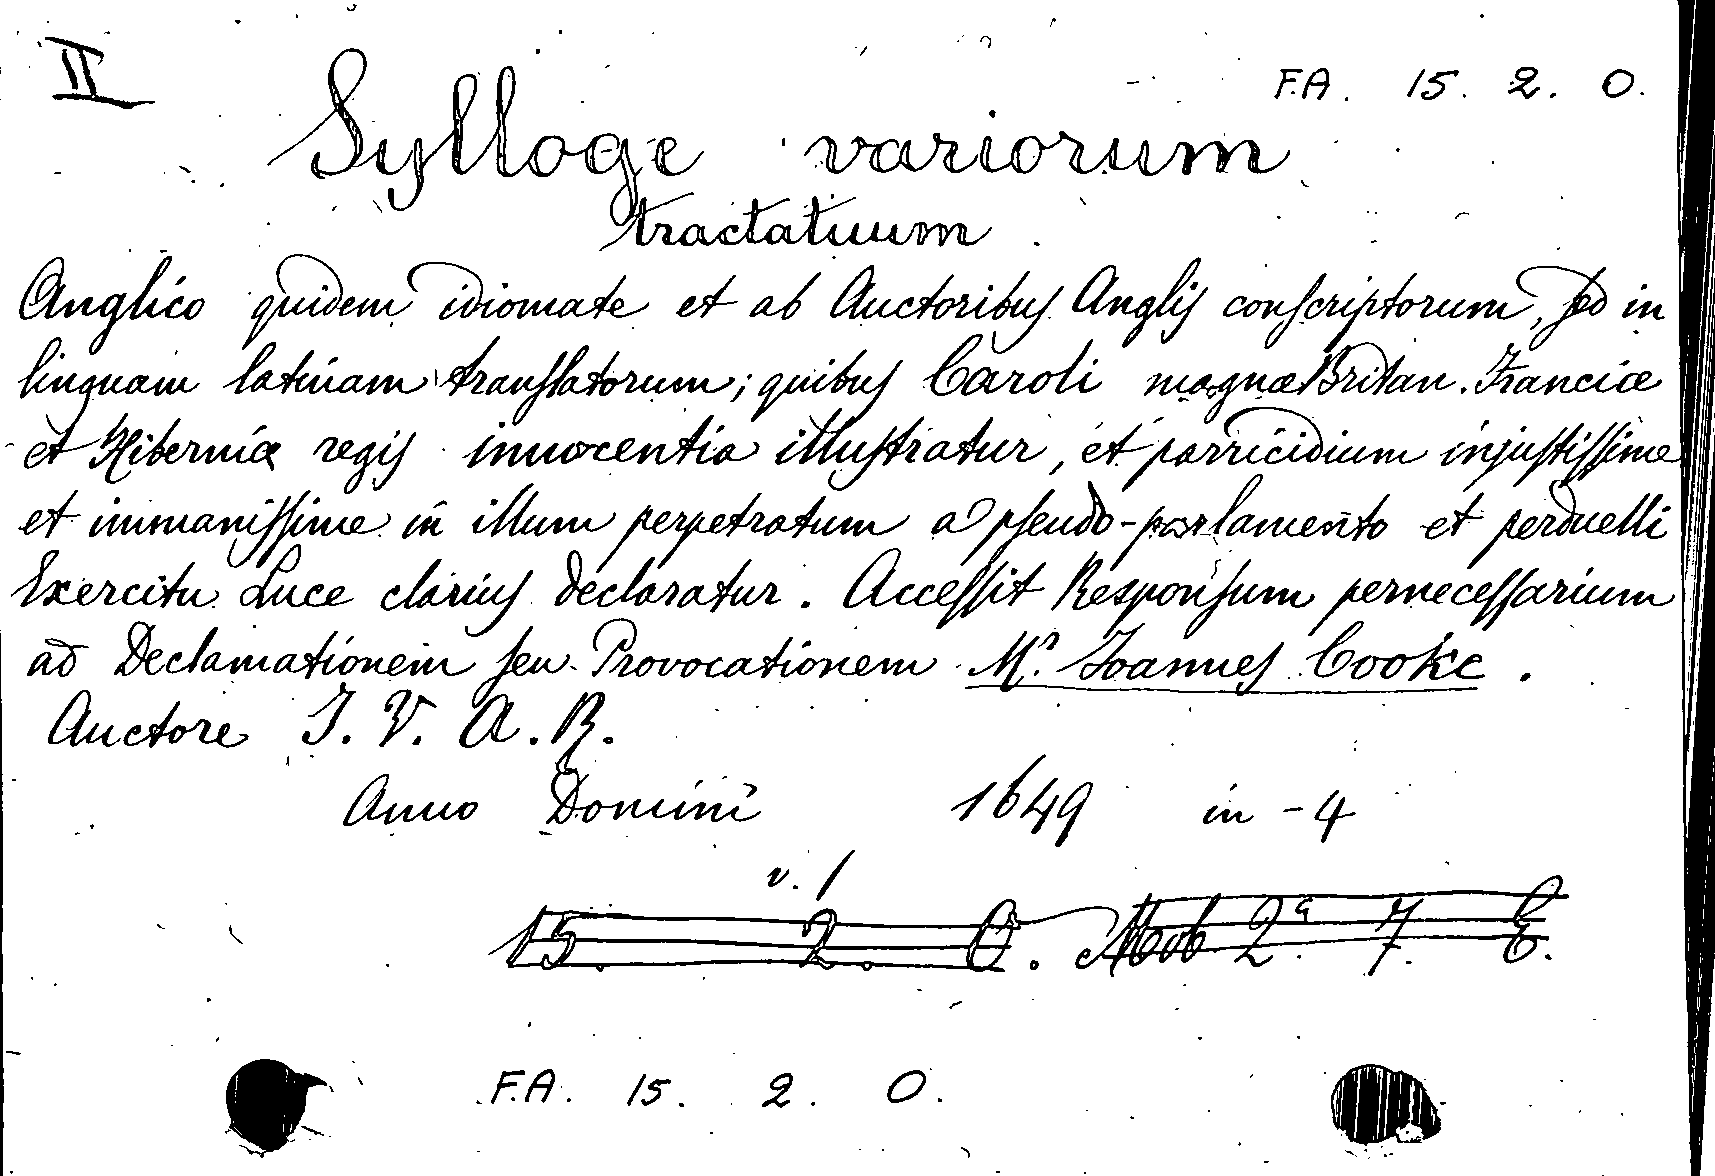 II
F.A. 15. 2. O.
Sylloge variorum
tractatuum
Anglico quidem idiomate et ab Auctoribuſ Angliſ conſcriptorum, ſed in
linguam latinam tranſlatorum; quibuſ Caroli magnæ Britan. Franciæ
et Hiberniæ regiſ innocentia illuſtratur, et parricidium injuſtiſſime
et immaniſſime in illum perpetratum a pſeudo-parlamento et perduelli
Exercitu Luce clariuſ declaratur. Acceſſit Reſponſum perneceſſarium
ad Declamationem ſeu Provocationem Mr. Joanneſ Cooke.
Auctore J. V. A. R.
Anno Domini 1649 in-4
v. 1
15. 2. O. Mob 2a 7. E.
F.A. 15. 2. O.